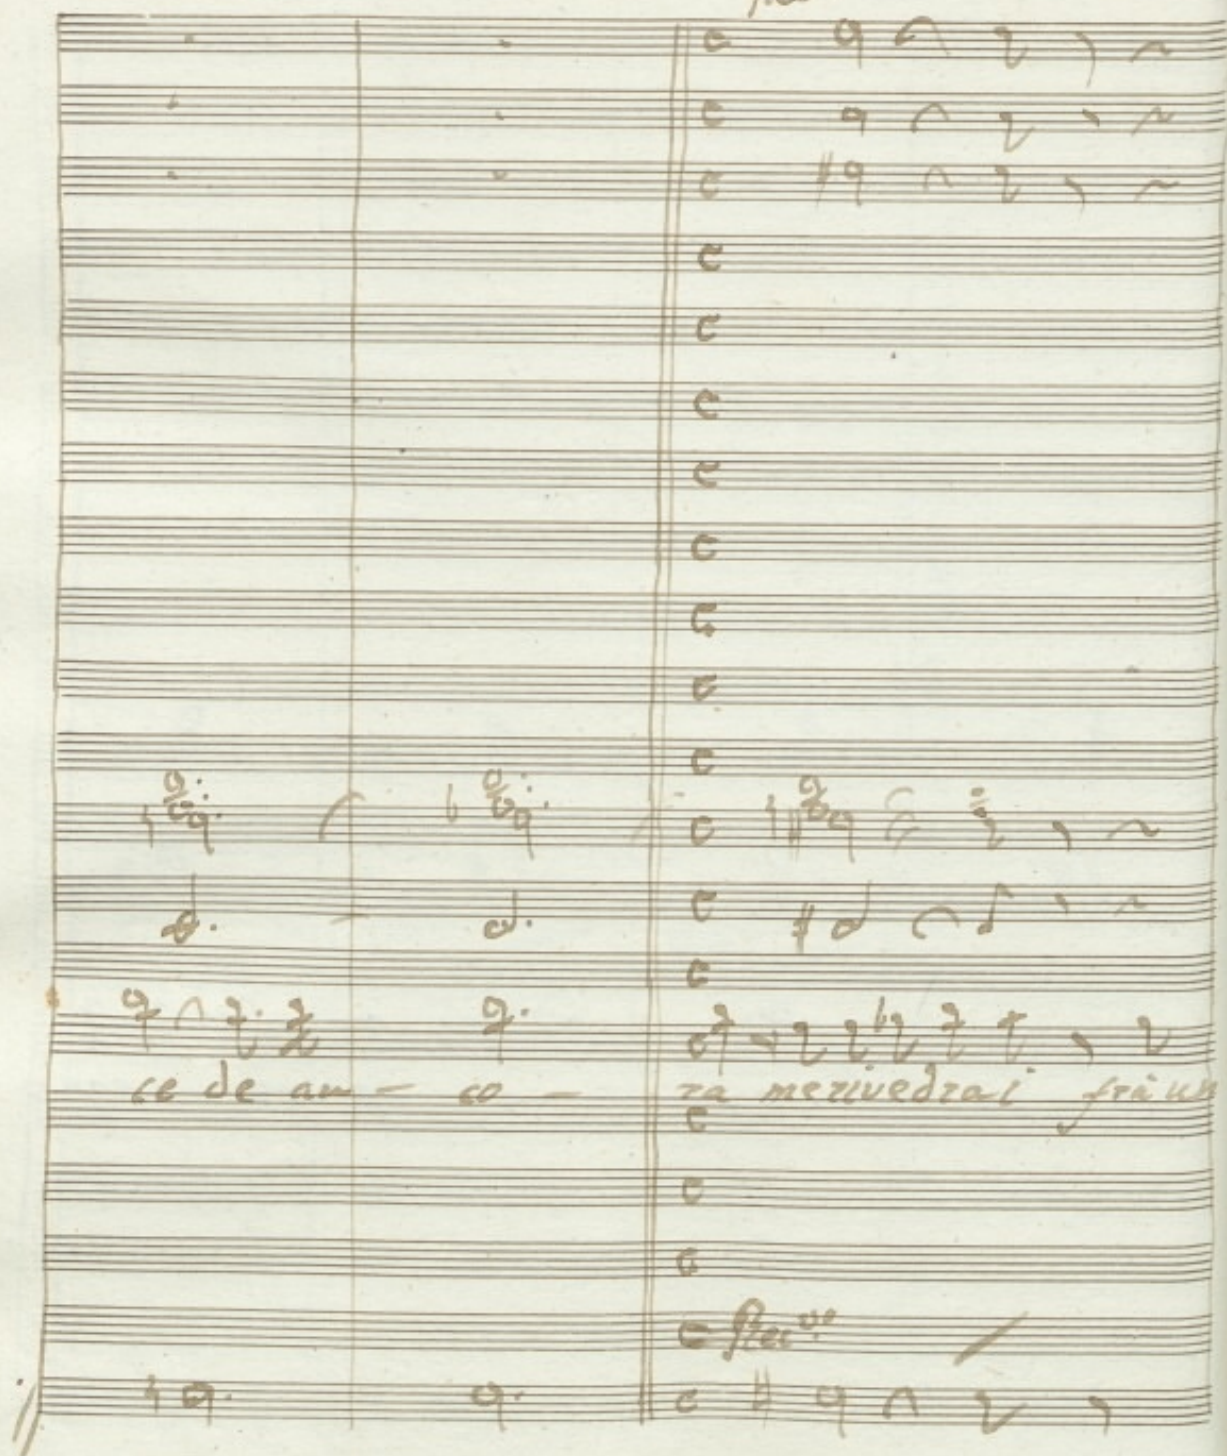 ce de an - co - ra merivedrai frà un
Rec.vo